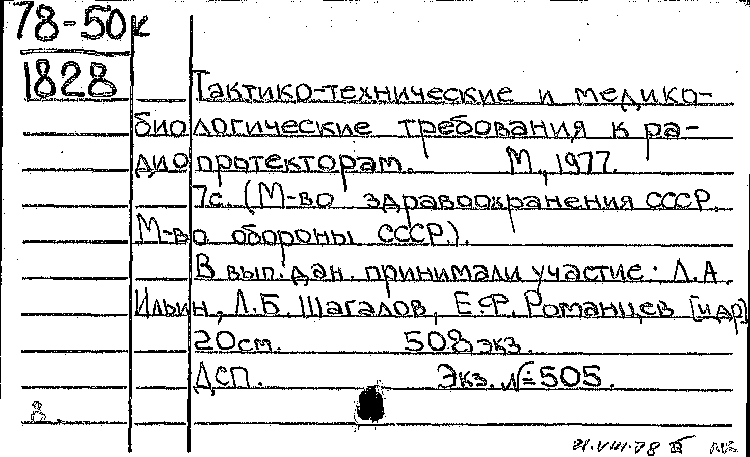 78-50к
1828
Тактико-технические и медико-
биологические требования к ра-
диопротекторам. М., 1977.
7с. (М-во здравоохранения СССР.
М-во обороны СССР.).
В вып. дан. принимали участие: Л.А.
Ильин, Л.Б. Шагалов, Е.Ф. Романцев [и др]
20см. 508 экз.
ДСП. Экз. №505.
8.
31.VIII.78